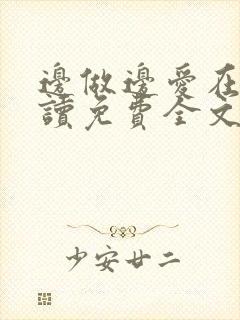 邊做邊愛在
讀免費全文
少安廿二